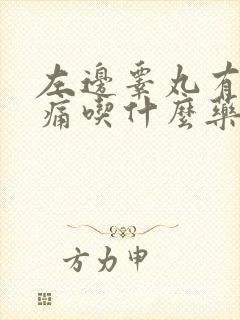 左邊睾丸有
痛喫什麼藥
方力申